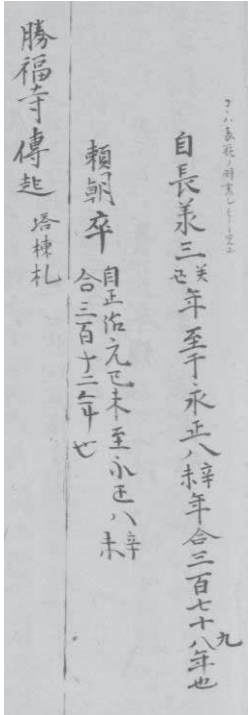 自長承三癸丑年至于永正八辛未年合三百七十八年也
九
頼朝卒
自正治元己未至永正八辛未
合三百十二年也
勝福寺傳起 塔棟札